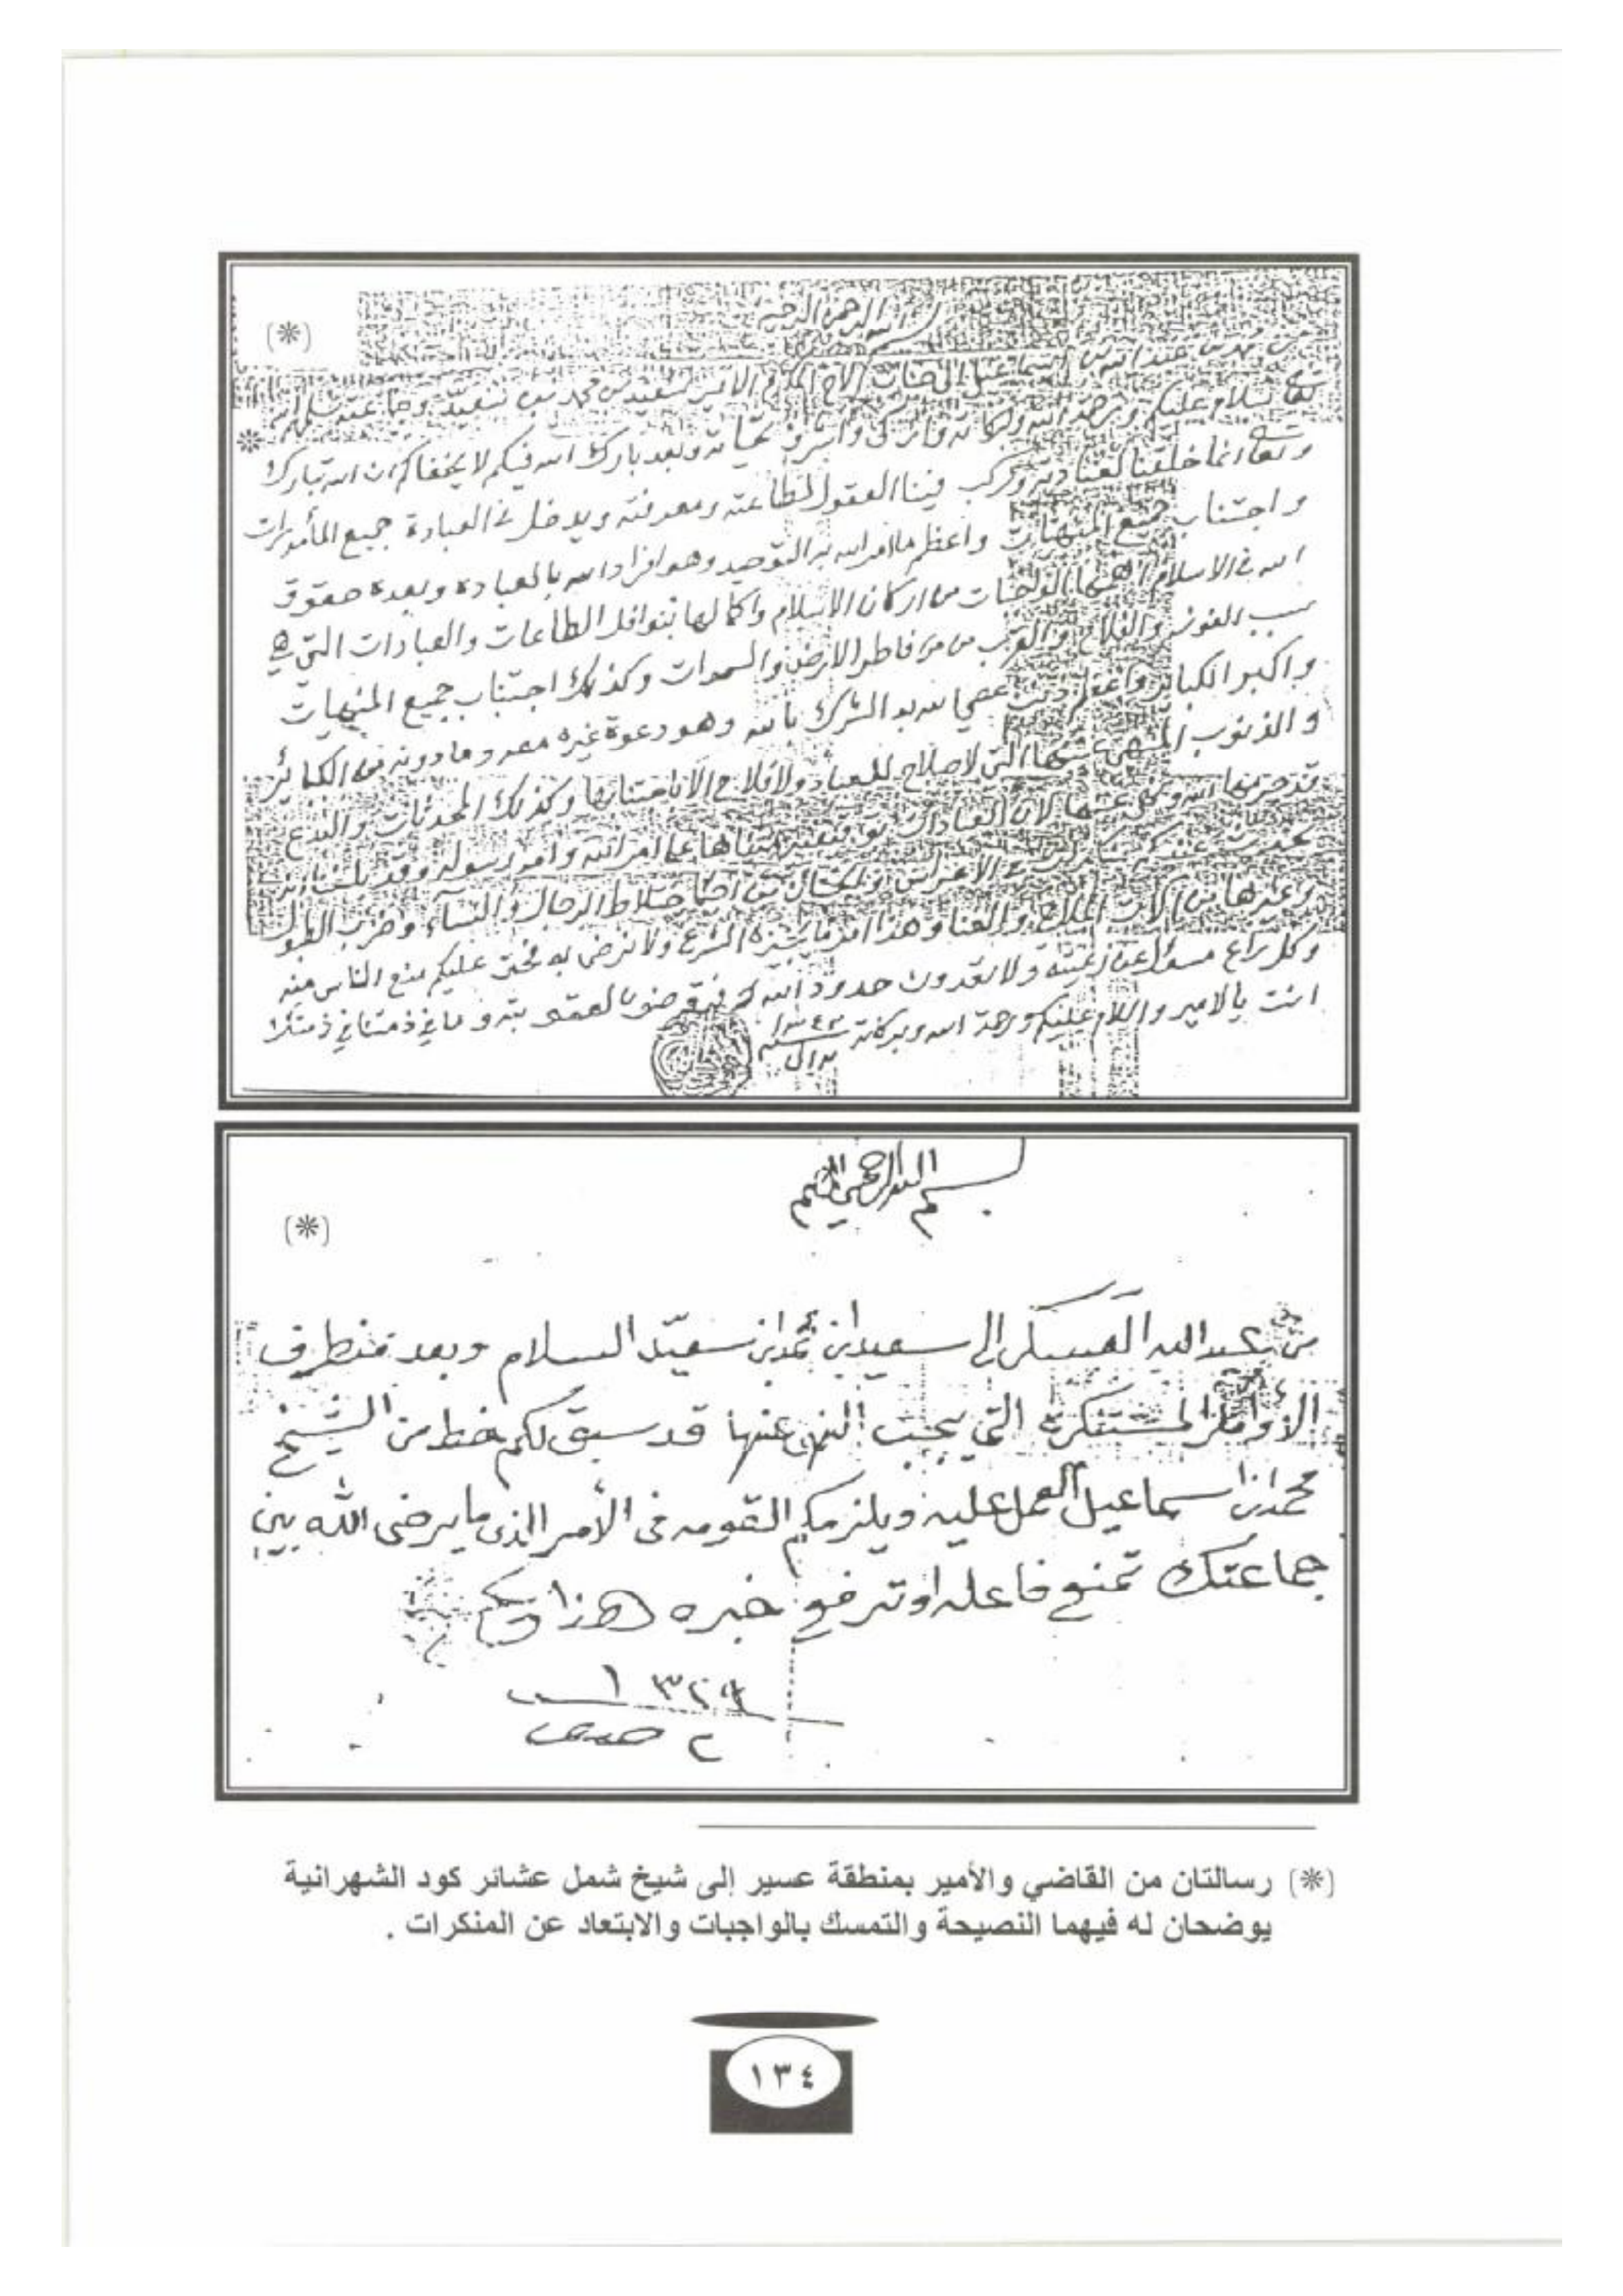 (*)
بسم الله الرحمن الرحيم
من محمد بن عبد الله بن اسماعيل الى جناب الأخ المكرم الامير سعيد بن محمد بن سعيد وجماعته سلمهم الله
تعا سلام عليكم ورحمة الله وبركاته وازكى واشرف تحياته وبعد بارك الله فيكم لا يخفاكم ان الله تبارك
وتعا انما خلقنا لعبادته وركب فينا العقول لطاعته ومعرفته ويدخل في العبادة جميع المأمورات
واجتناب جميع المنهيات واعظم ما امر الله به التوحيد وهو افراد الله بالعباده وبعده حقوق
الله في الاسلام الواجبات من اركان الاسلام واكمالها بنوافل الطاعات والعبادات التي هي
سبب الفوز والفلاح والقرب من فاطر الارض والسموات وكذلك اجتناب جميع المنهيات
واكبر الكبائر واعظم ذنب عصي الله به الشرك بالله وهو دعوة غيره معه وما دونه من الكبائر
والذنوب المنهي عنها التي لاصلاح للعباد ولا فلاح الا باجتنابها وكذلك المحدثات والبدع
قد حرمها الله ونهى عنها لان العبادات امر الله وامر رسوله وقد بلغنا انه
يحدث عندكم في الاعراس والختان من اختلاط الرجال والنساء وضرب الطبول
وغيرها من آلات الملاهي والغنا وهذا امر ما يجيزه الشرع ولا نرضى به فحتم عليكم منع الناس منه
وكل راع مسؤل عن رعيته ولا تعدون حدود الله وما في ذمتنا في ذمتك
انت يالامير والسلام عليكم ورحمة الله وبركاته
١٣٤٣
(*)
بسم الله الرحمن الرحيم
من عبد الله العسكر إلى سعيد ابن محمد ابن سعيد السلام وبعد منطرف
الأوامر المستنكره التي يجب النهي عنها قد سبق لكم خط من الشيخ
محمد ابن اسماعيل العمل عليه ويلزمكم القومه في الأمر الذي ما يرضى الله بين
جماعتك تمنع فاعله او ترفع خبره هذا
٢
(*) رسالتان من القاضي والأمير بمنطقة عسير إلى شيخ شمل عشائر كود الشهرانية
يوضحان له فيهما النصيحة والتمسك بالواجبات والابتعاد عن المنكرات .
١٣٤